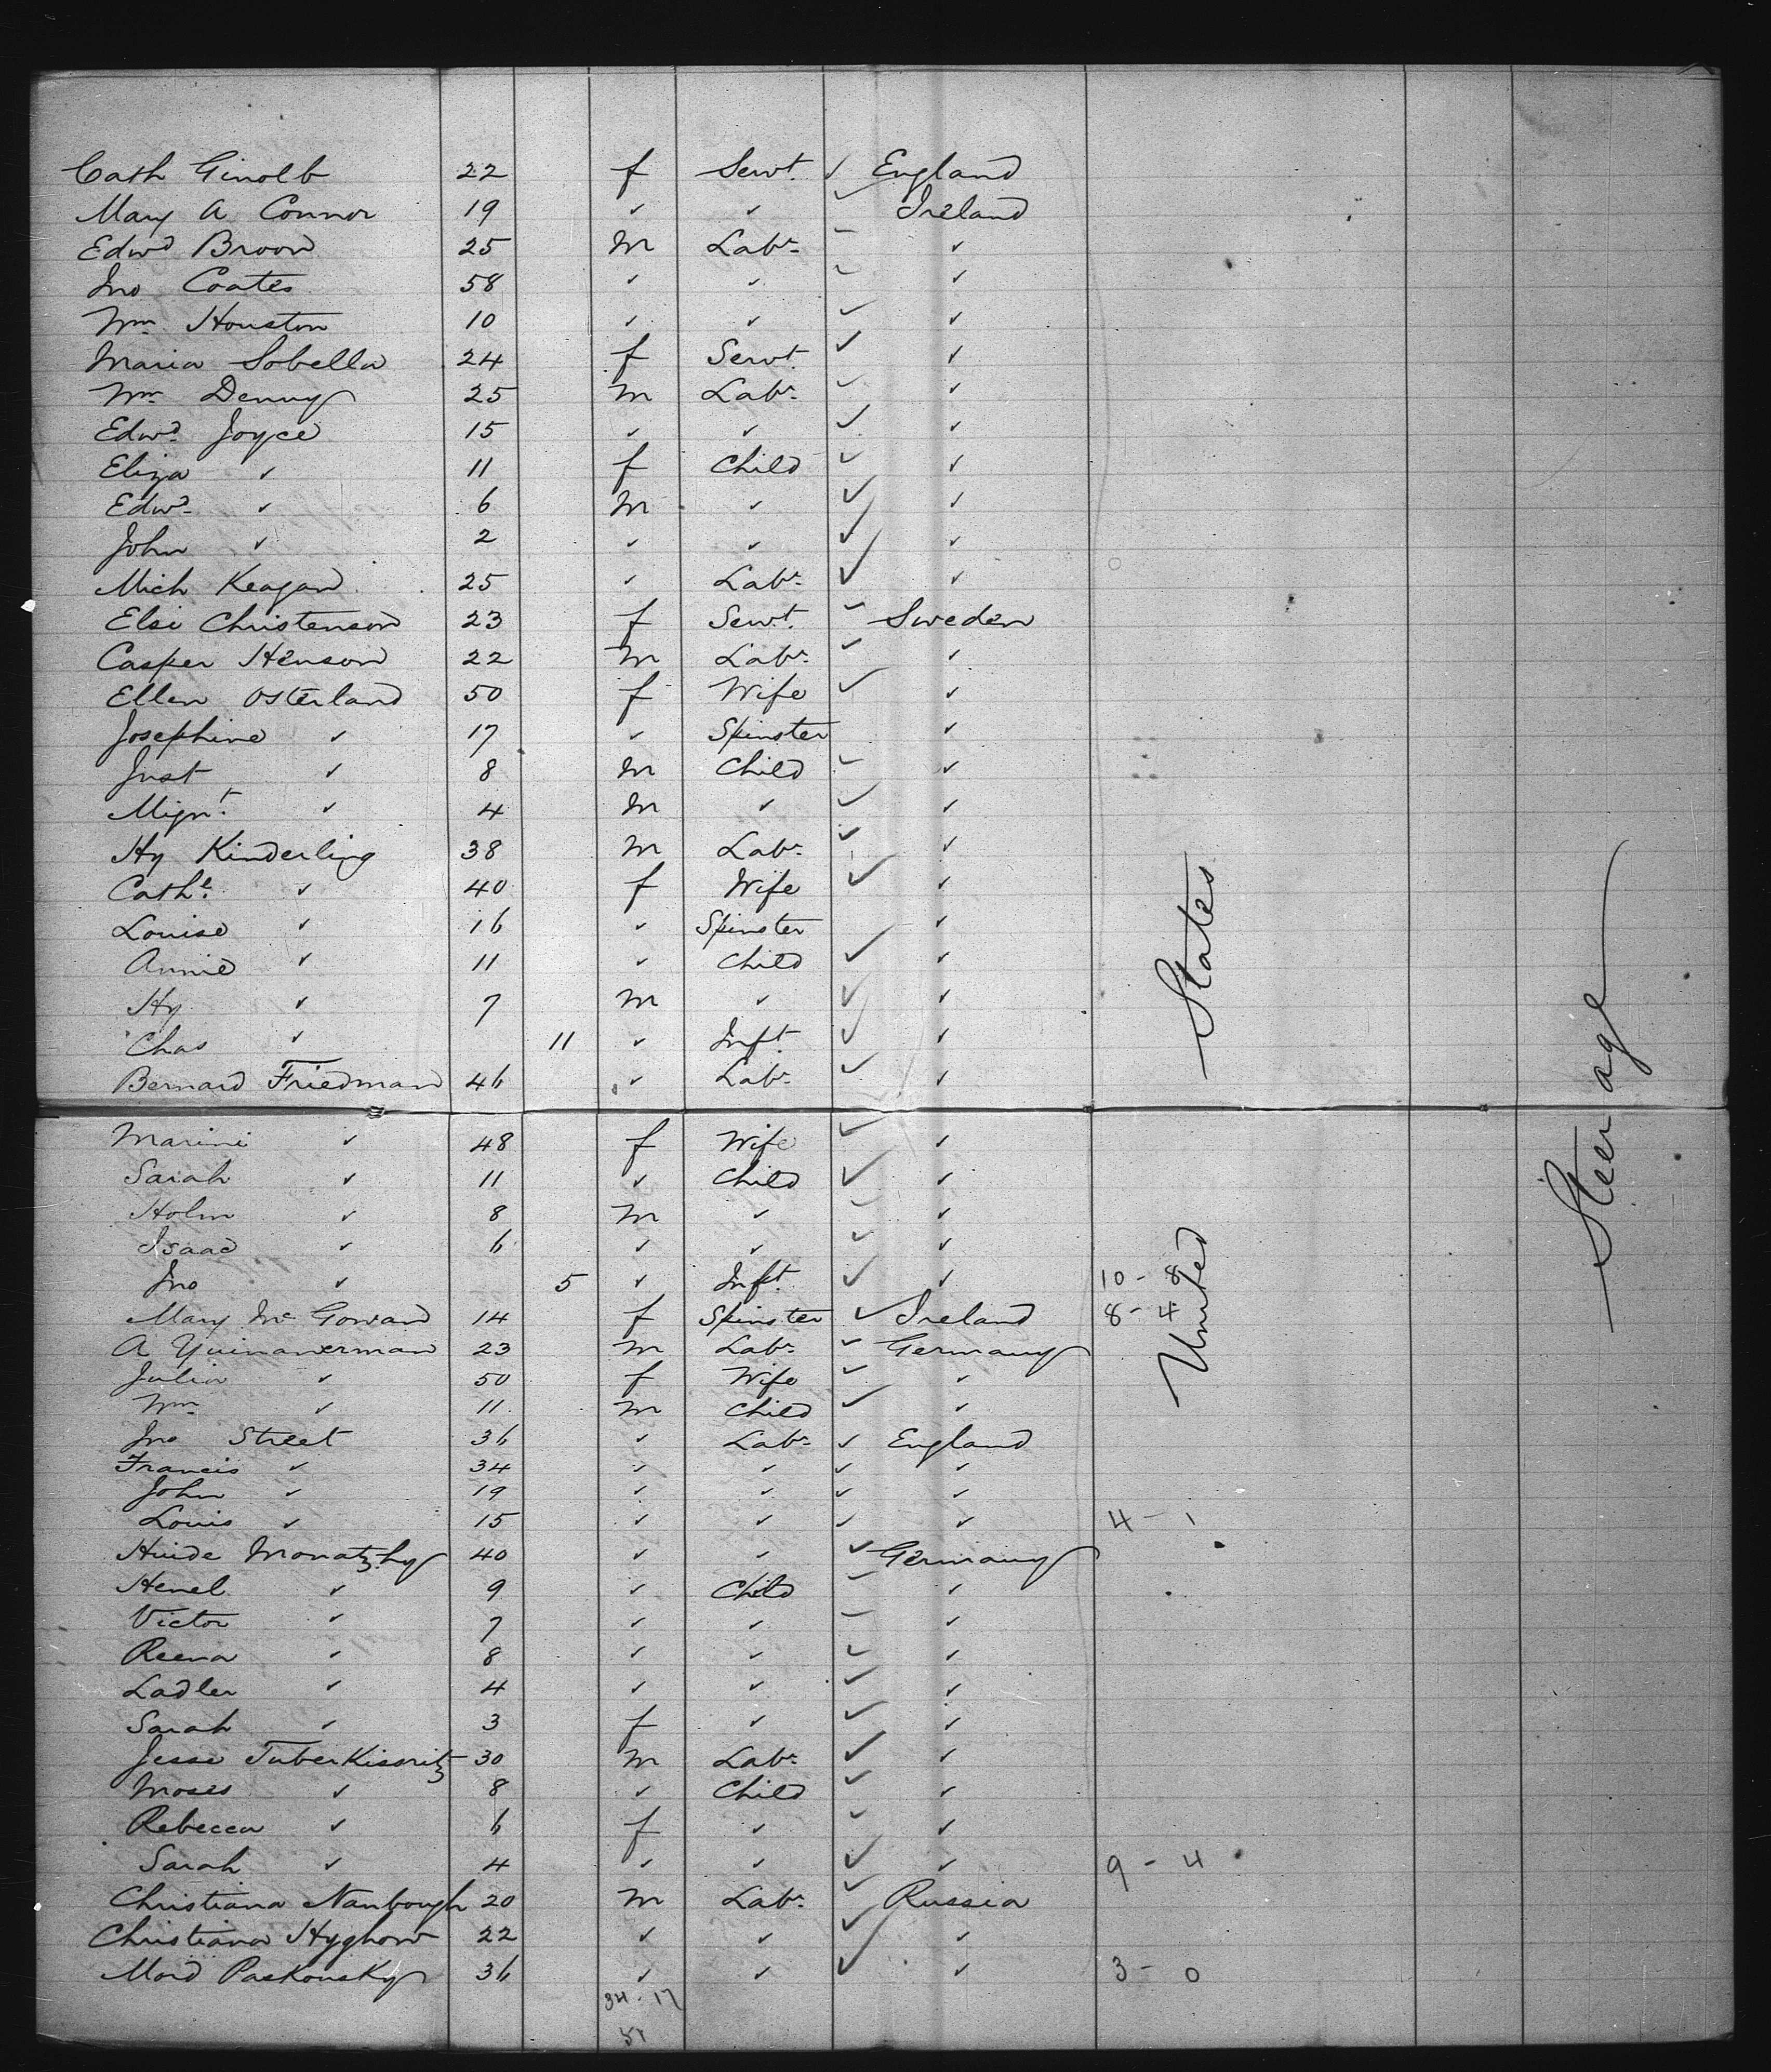 Cath Ginolb 22 f Servt. ✓ England
Mary A Connor 19 ✓ ✓ ✓ Ireland
Edwd Broon 25 M Labr. ✓ ✓
Jno Coates 58 ✓ ✓ ✓ ✓
Wm Houston 10 ✓ ✓ ✓ ✓
Maria Sobella 24 f Servt. ✓ ✓
Wm Denny 25 M Labr. ✓ ✓
Edwd. Joyce 15 ✓ ✓ ✓ ✓
Eliza ✓ 11 f Child ✓ ✓
Edwd. ✓ 6 M ✓ ✓ ✓
John ✓ 2 ✓ ✓ ✓ ✓
Mich Keagan 25 ✓ Labr. ✓ ✓
Elsi Christenson 23 f Servt. ✓ Sweden
Casper Henson 22 M Labr. ✓ ✓
Ellen Osterland 50 f Wife ✓ ✓
Josephine ✓ 17 ✓ Spinster ✓
Just ✓ 8 M Child ✓ ✓
Mignt. ✓ 4 M ✓ ✓ ✓
Hy Kinderling 38 M Labr. ✓ ✓
Cathe. ✓ 40 f Wife ✓ ✓
Louise ✓ 16 ✓ Spinster ✓
Annie ✓ 11 ✓ Child ✓ ✓
Hy ✓ 7 M ✓ ✓ ✓
Chas ✓ 11 ✓ Inft ✓ ✓
Bernard Friedman 46 ✓ Labr. ✓ ✓
Marini ✓ 48 f Wife ✓ ✓
Sarah ✓ 11 ✓ Child ✓ ✓
Holm ✓ 8 M ✓ ✓ ✓
Isaac ✓ 6 ✓ ✓ ✓ ✓
Jno ✓ 5 ✓ Inft. ✓ ✓ 10 - 8
Mary Mc Gowan 14 f Spinster ✓ Ireland 8 - 4
A Yuinanerman 23 M Labr. ✓ Germany
Julia ✓ 50 f Wife ✓ ✓
Wm ✓ 11 M Child ✓ ✓
Jno Street 36 ✓ Labr. ✓ England
Francis ✓ 34 ✓ ✓ ✓ ✓
John ✓ 19 ✓ ✓ ✓ ✓
Louis ✓ 15 ✓ ✓ ✓ ✓ 4 - 1
Huide Monatzhy 40 ✓ ✓ ✓ Germany
Henel ✓ 9 ✓ Child ✓ ✓
Victor ✓ 7 ✓ ✓ ✓ ✓
Reena ✓ 8 ✓ ✓ ✓ ✓
Ladler ✓ 4 ✓ ✓ ✓ ✓
Sarah ✓ 3 f ✓ ✓ ✓
Jesse Tuberkisoritz 30 M Labr. ✓ ✓
Moses ✓ 8 ✓ Child ✓ ✓
Rebecca ✓ 6 f ✓ ✓ ✓
Sarah ✓ 4 ✓ ✓ ✓ ✓ 9 - 4
Christiana Nanbough 20 M Labr. ✓ Russia
Christiana Hyghow 22 ✓ ✓ ✓ ✓
Mord Paskousky 36 ✓ ✓ ✓ ✓ 3 - 0
34 - 17
51
United States
Steerage